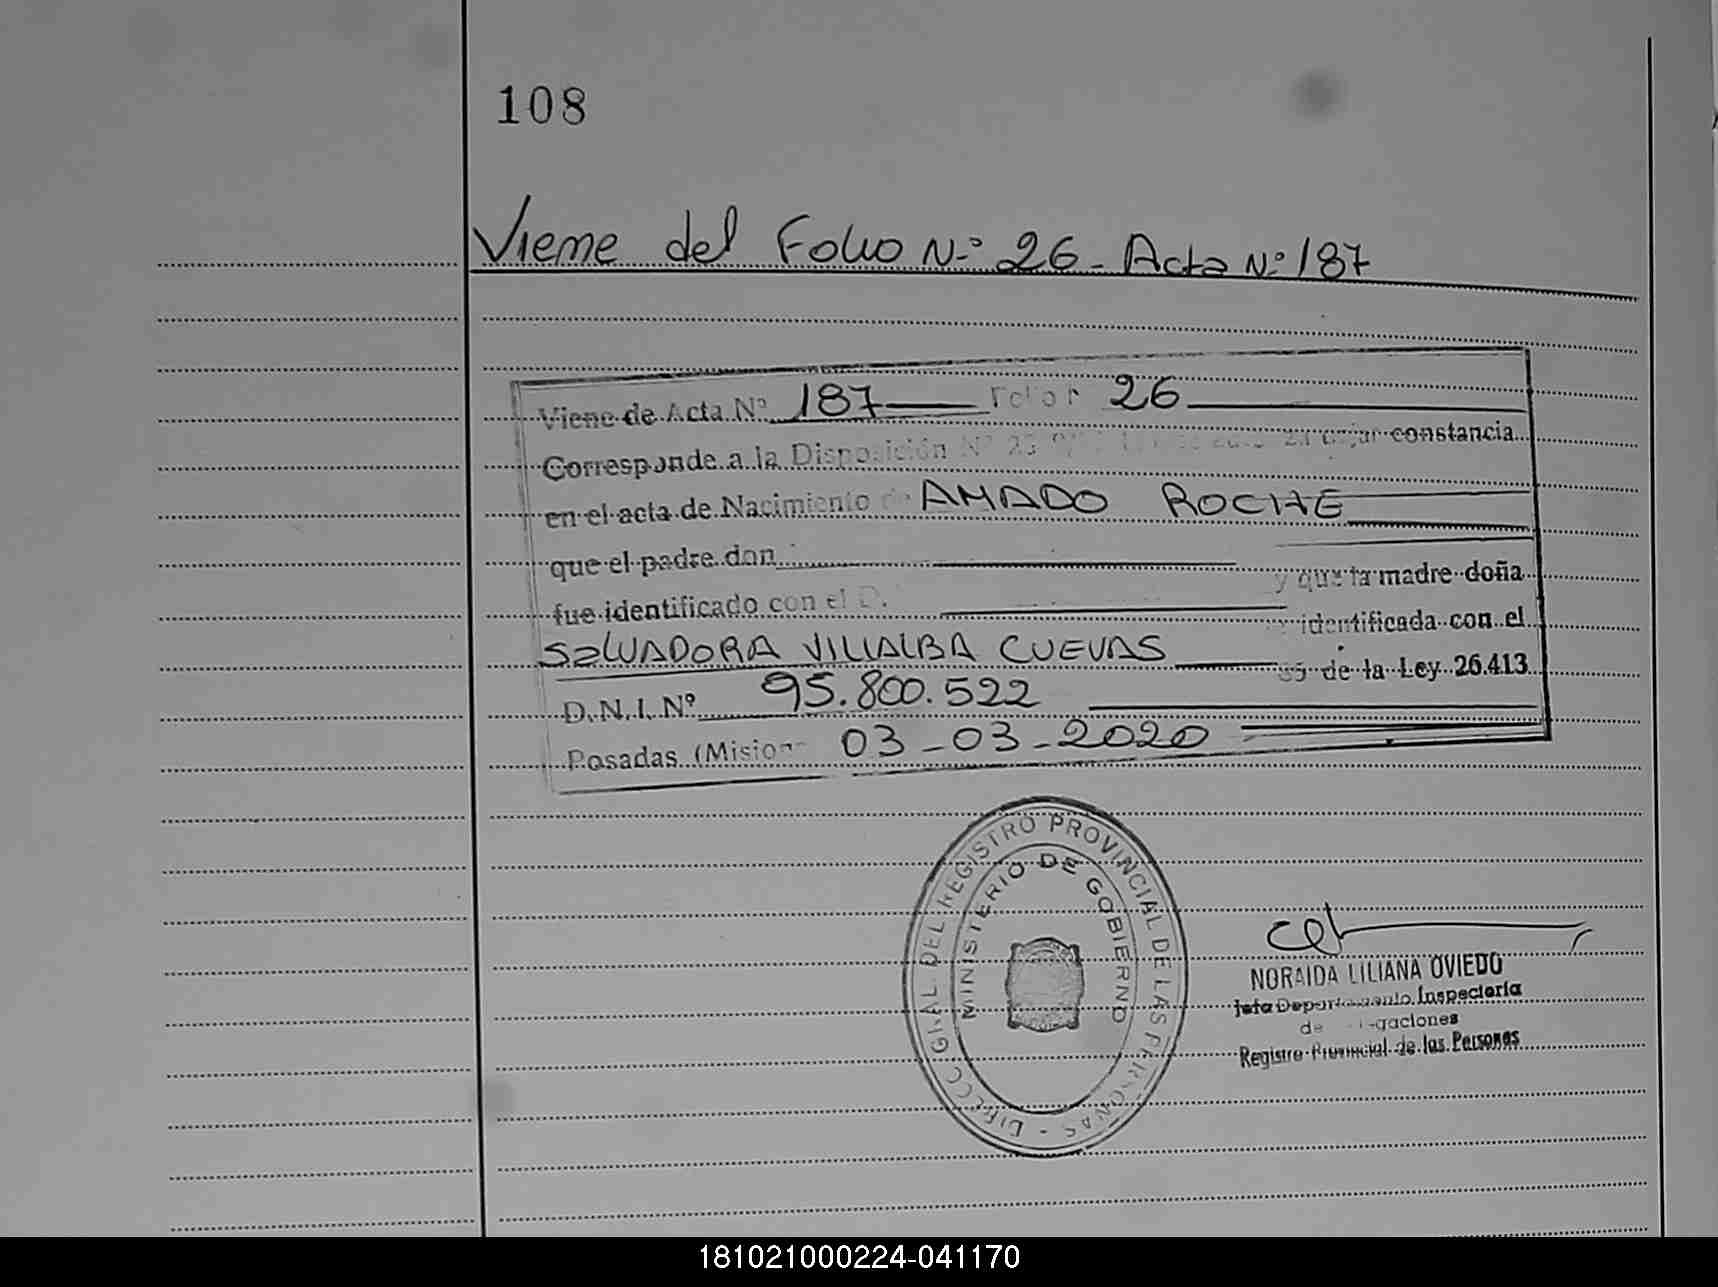 108
Viene del Folio N.º 26 - Acta N.º 187
Viene de Acta Nº 187 Folio 26
Corresponde a la Disposición Nº constancia
en el acta de Nacimiento de AMADO ROCHE
que el padre don
fue identificado con el D. y que la madre doña
SALVADORA VILLALBA CUEVAS identificada con el
D.N.I. Nº 95.800.522 de la Ley 26.413
Posadas (Mision 03-03-2020
DIRECC GRAL DEL REGISTRO PROVINCIAL DE LAS PERSONAS -
MINISTERIO DE GOBIERNO
NORAIDA LILIANA OVIEDO
Jefa Departamento Inspectoría
de
Registro Provincial de las Personas
181021000224-041170